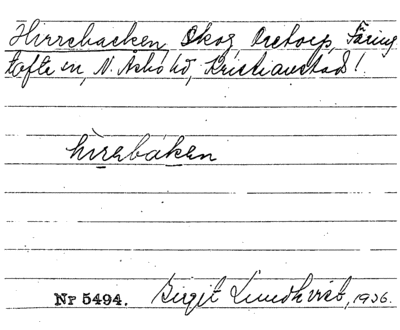 Hirrebacken, Skog, Oretorp, Färing
tofta sn, N. Åsbo hd, Kristianstad l.
hirebaken
Nr 5494. Birgit Lundkvist, 1936.